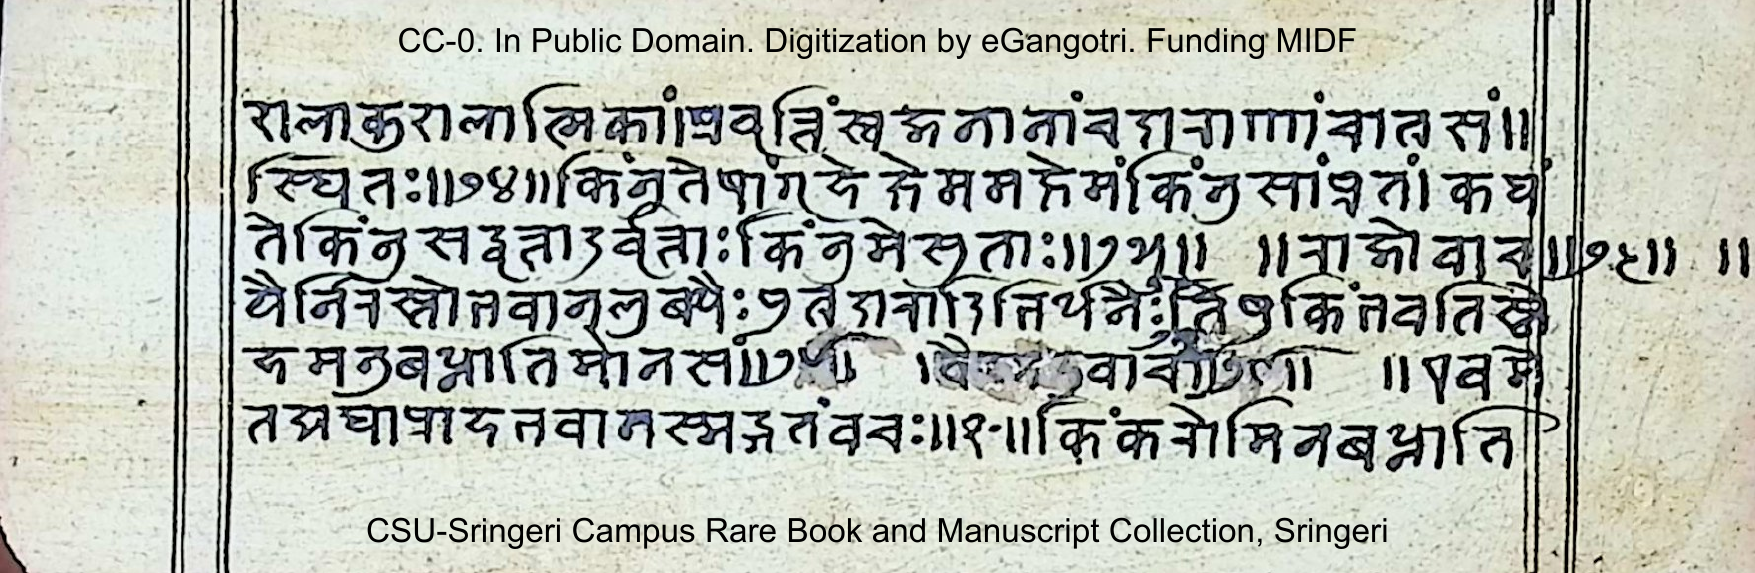 CC-0. In Public Domain. Digitization by eGangotri. Funding MIDF
शलाकुशलात्मिकां।प्रवृत्तिंस्वजनानांचदाराणांचात्रसं॥
स्थितः॥७४॥किंनुतेषांगृहेक्षेममक्षेमंकिंनुसांप्रतां।कथं
तेकिंनुसद्वृत्तादुर्वृत्ताःकिंनुमेसुताः॥७५॥ ॥राजोवाच॥७६॥ ॥
यैर्निरस्तोभवान्लुब्धैःपुत्रदारादिभिर्धनैः।तेषुकिंभवतिस्ने
हमनुबध्नातिमानसं॥ वाच ॥एवमे
तद्यथाप्राहभवानस्मद्गतंवचः॥१॥किंकरोमिनबध्नाति
CSU-Sringeri Campus Rare Book and Manuscript Collection, Sringeri